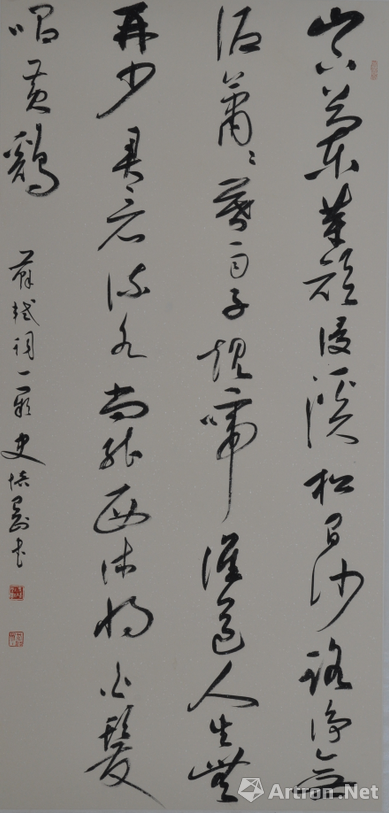 山下蘭芽短浸溪松間沙路淨無
泥蕭〻暮雨子規啼誰道人生無
再少君看流水尚能西休將白髮
唱黃鷄
蘇軾詞一首 史培書
Artron.Net